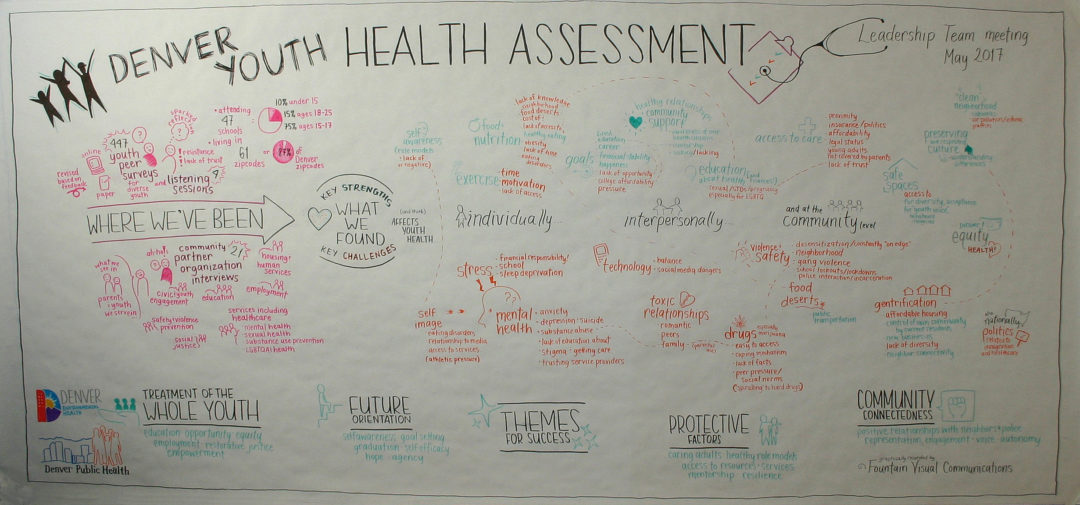 DENVER
YOUTH
HEALTH ASSESSMENT
Leadership Team meeting
May 2017
online
447
youth
peer
surveys
for
diverse
youth
revised
based on
feedback
paper
• attending
47
schools
• living in
61
zipcodes
resistance
lack of trust
and
listening
sessions
9
10% under 15
15% ages 18-25
75% ages 15-17
77%
of
Denver
zipcodes
WHERE WE'VE BEEN
KEY STRENGTHS
WHAT
WE
FOUND
KEY CHALLENGES
AFFECTS
YOUTH
HEALTH
community
partner
organization
interviews
21
ah-ha!s
what we
see in
parents
youth
we
civic/youth
engagement
education
housing/
human
services
employment
safety+violence
prevention
social
justice
services including
healthcare
mental health
sexual health
substance use prevention
LGBTQAI health
self
awareness
role models
• lack of
food+
nutrition
lack of knowledge
neighborhood
food deserts
cost of:
healthy eating
obesity
lack of time
eating
disorders
exercise
time
motivation
lack of access
individually
goals
education
career
financial stability
happiness
lack of opportunity
college affordability
pressure
healthy relationships
community
support
lacking
education
about
sexual/STDs/pregnancy
especially for LGBTQ
interpersonally
access to care
proximity
insurance/politics
affordability
legal status
young adults
not covered by parents
lack of trust
and at the
community level
clean
neighborhood
preserving
and respecting
culture
safe
spaces
access to
equity
HEALTH
stress
financial responsibility/
school
sleep deprivation
self
image
eating disorders
relationship to media
access to services
(athletic pressure)
mental
health
• anxiety
• depression • suicide
• substance abuse
• lack of education about
• stigma • getting care
• trusting service providers
technology
• balance
• social media dangers
toxic
relationships
romantic
peers
family
violence
safety
desensitization/constantly "on edge"
neighborhood
gang violence
school lockouts/lockdowns
police interaction/incarceration
food
deserts
public
transportation
drugs
especially
marijuana
• easy to access
• coping mechanism
• lack of facts
• peer pressure/
social norms
(spiraling to hard drugs)
gentrification
affordable housing
control of own community
by current residents
new businesses
lack of diversity
neighbor connectivity
nationally
politics
DENVER
ENVIRONMENTAL
HEALTH
Denver Public Health
TREATMENT OF THE
WHOLE YOUTH
education opportunity equity
employment • restorative justice
empowerment
FUTURE
ORIENTATION
self awareness goal setting
graduation • self efficacy
hope • agency
THEMES
FOR SUCCESS
PROTECTIVE
FACTORS
caring adults healthy role models
access to resources + services
mentorship • resilience
COMMUNITY
CONNECTEDNESS
positive relationships with neighbors + police
representation, engagement • voice • autonomy
graphically recorded by
Fountain Visual Communications